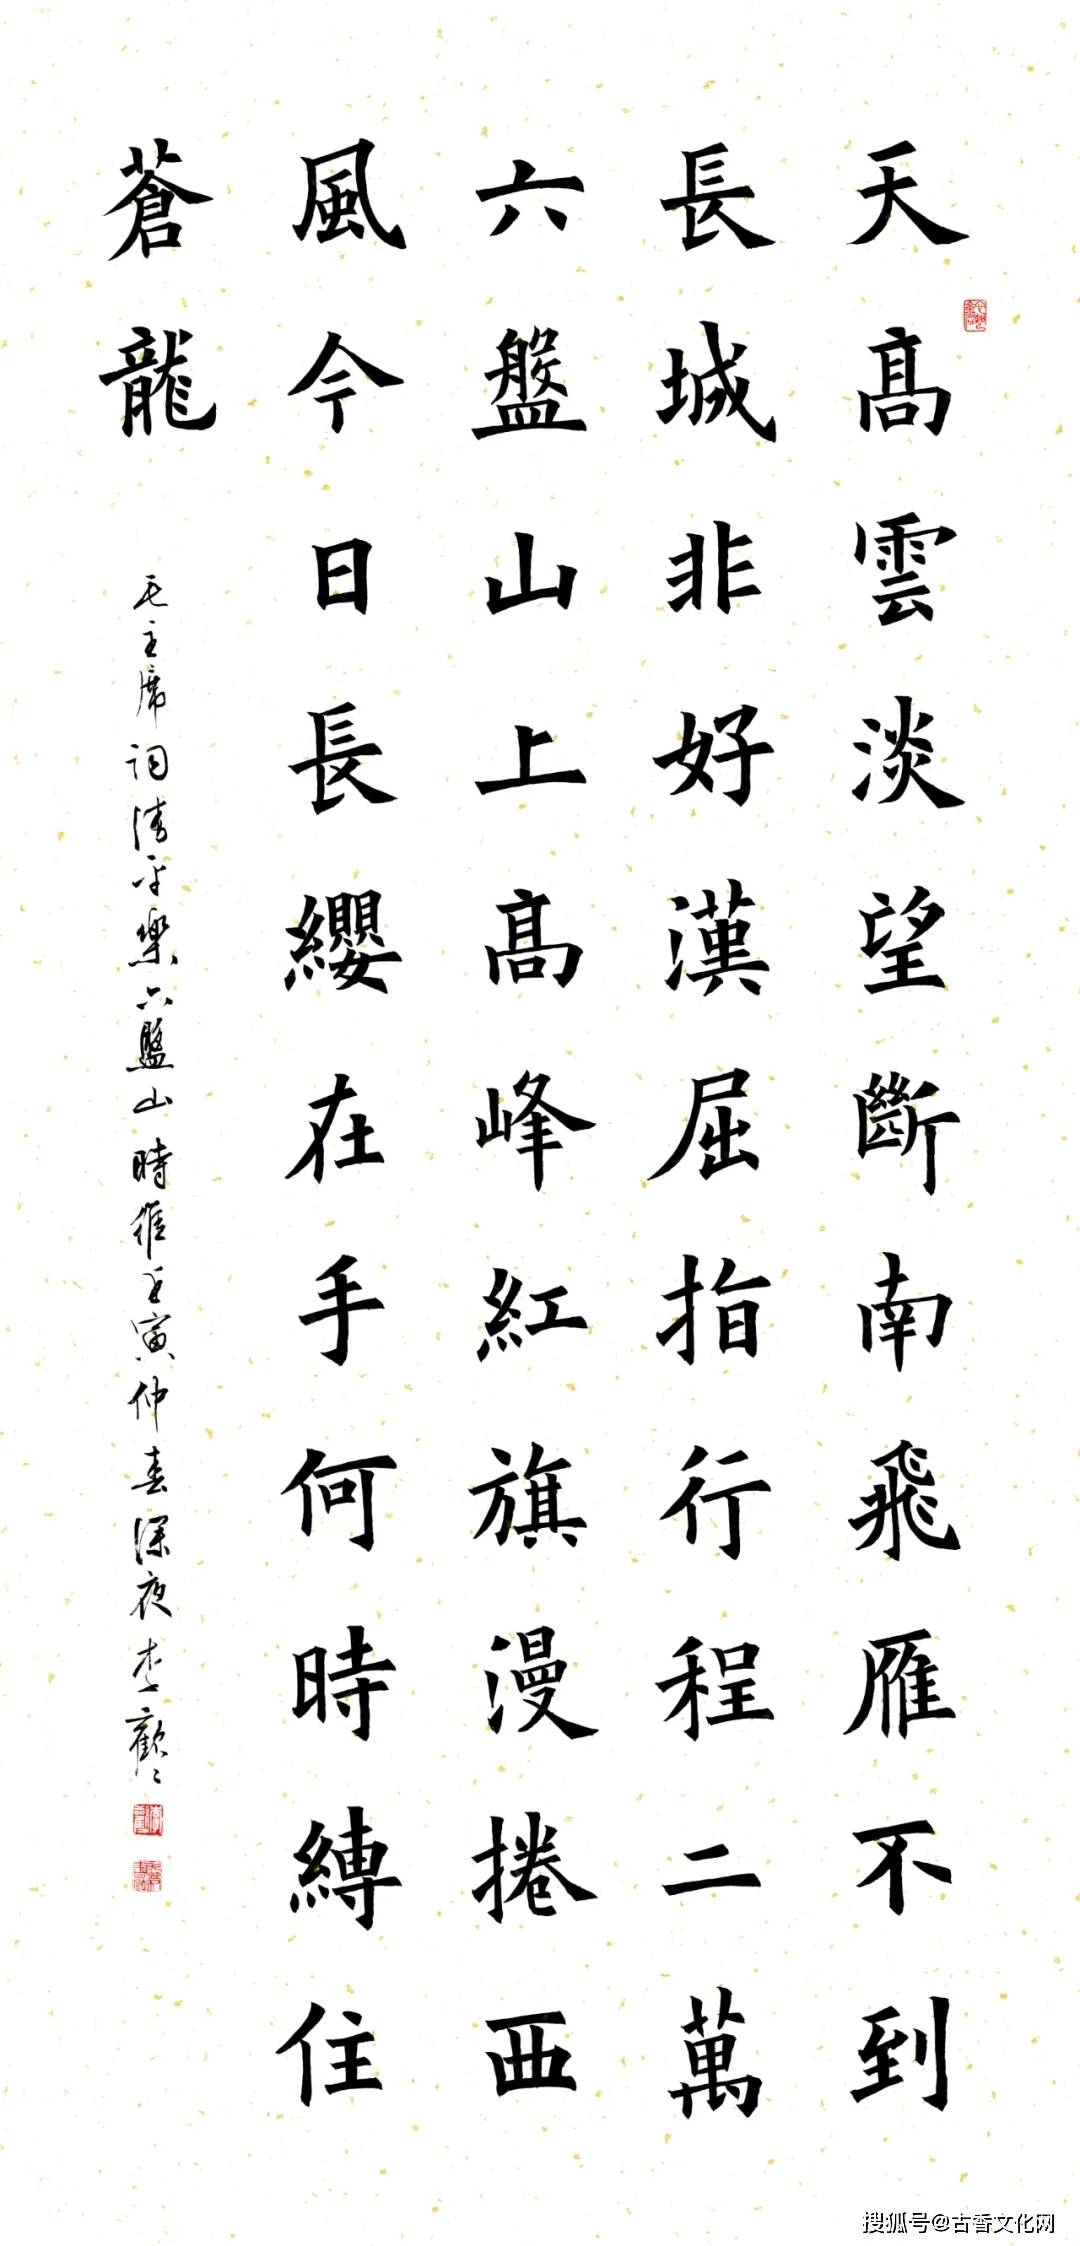 天高雲淡望斷南飛雁不到
長城非好漢屈指行程二萬
六盤山上高峰紅旗漫捲西
風今日長纓在手何時縛住
蒼龍
毛主席詞清平樂六盤山時維壬寅仲春深夜李歡
搜狐号@古香文化网